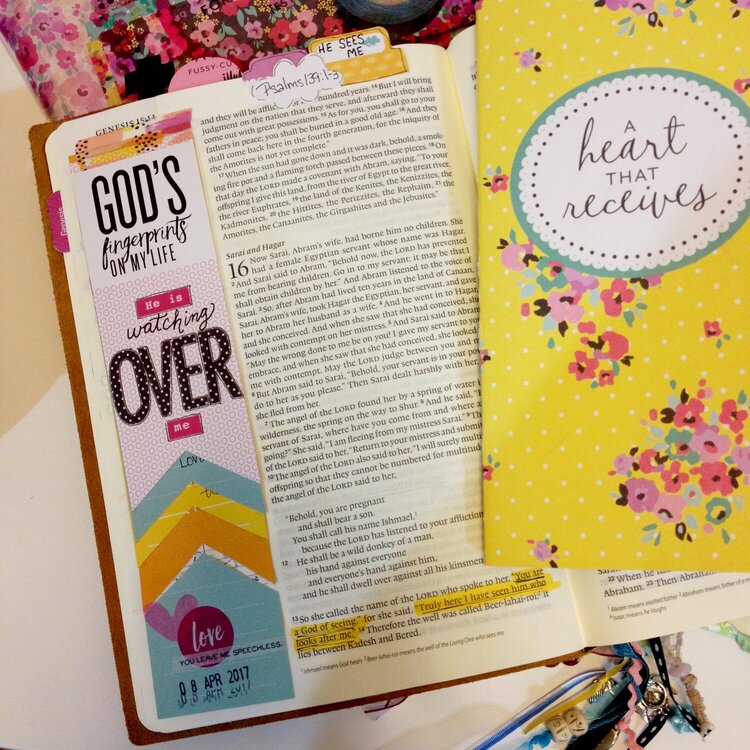 FUSSY-CU
HE SEES
ME
Psalms 139:1-3
GENESIS 15-16
Genesis
GOD'S
fingerprints
ON MY LIFE
He is
watching
OVER
me
Love
love
YOU LEAVE ME SPEECHLESS.
08 APR 2017
and they will be afflic hundred years. 14 But I will bring
judgment on the nation that they serve, and afterward they shall
come out with great possessions. 15 As for you, you shall go to your
fathers in peace; you shall be buried in a good old age. 16 And they
shall come back here in the fourth generation, for the iniquity of
the Amorites is not yet complete."
17 When the sun had gone down and it was dark, behold, a smok-
ing fire pot and a flaming torch passed between these pieces. 18 On
that day the LORD made a covenant with Abram, saying, "To your
offspring I give this land, from the river of Egypt to the great river,
the river Euphrates, 19 the land of the Kenites, the Kenizzites, the
Kadmonites, 20 the Hittites, the Perizzites, the Rephaim, 21 the
Amorites, the Canaanites, the Girgashites and the Jebusites."
Sarai and Hagar
16 Now Sarai, Abram's wife, had borne him no children. She
had a female Egyptian servant whose name was Hagar.
2 And Sarai said to Abram, "Behold now, the LORD has prevented
me from bearing children. Go in to my servant; it may be that I
shall obtain children by her." And Abram listened to the voice of
Sarai. 3 So, after Abram had lived ten years in the land of Canaan,
Sarai, Abram's wife, took Hagar the Egyptian, her servant, and gave
her to Abram her husband as a wife. 4 And he went in to Hagar,
and she conceived. And when she saw that she had conceived, she
looked with contempt on her mistress. 5 And Sarai said to Abram,
"May the wrong done to me be on you! I gave my servant to you
embrace, and when she saw that she had conceived, she looked
me with contempt. May the LORD judge between you and m
6 But Abram said to Sarai, "Behold, your servant is in your po
do to her as you please." Then Sarai dealt harshly with her,
she fled from her.
7 The angel of the LORD found her by a spring of water i
wilderness, the spring on the way to Shur. 8 And he said, "H
servant of Sarai, where have you come from and where a
going?" She said, "I am fleeing from my mistress Sarai." 9 Th
of the LORD said to her, "Return to your mistress and submit
10 The angel of the LORD also said to her, "I will surely multi
offspring so that they cannot be numbered for multitud
the angel of the LORD said to her,
"Behold, you are pregnant
and shall bear a son.
You shall call his name Ishmael,1
because the LORD has listened to your affliction
12 He shall be a wild donkey of a man,
his hand against everyone
and everyone's hand against him,
and he shall dwell over against all his kinsmen
13 So she called the name of the LORD who spoke to her, "You are
a God of seeing," for she said, "Truly here I have seen him who
looks after me." 14 Therefore the well was called Beer-lahai-roi;2 it
lies between Kadesh and Bered.
1 Ishmael means God hears 2 Beer-lahai-roi means the well of the Living One who sees me
A
heart
THAT
receives
22 When he
Abraham. 23 Then Abraham
1 Abram means exalted father 2 Abraham means father of a m
4 Isaac means he laughs